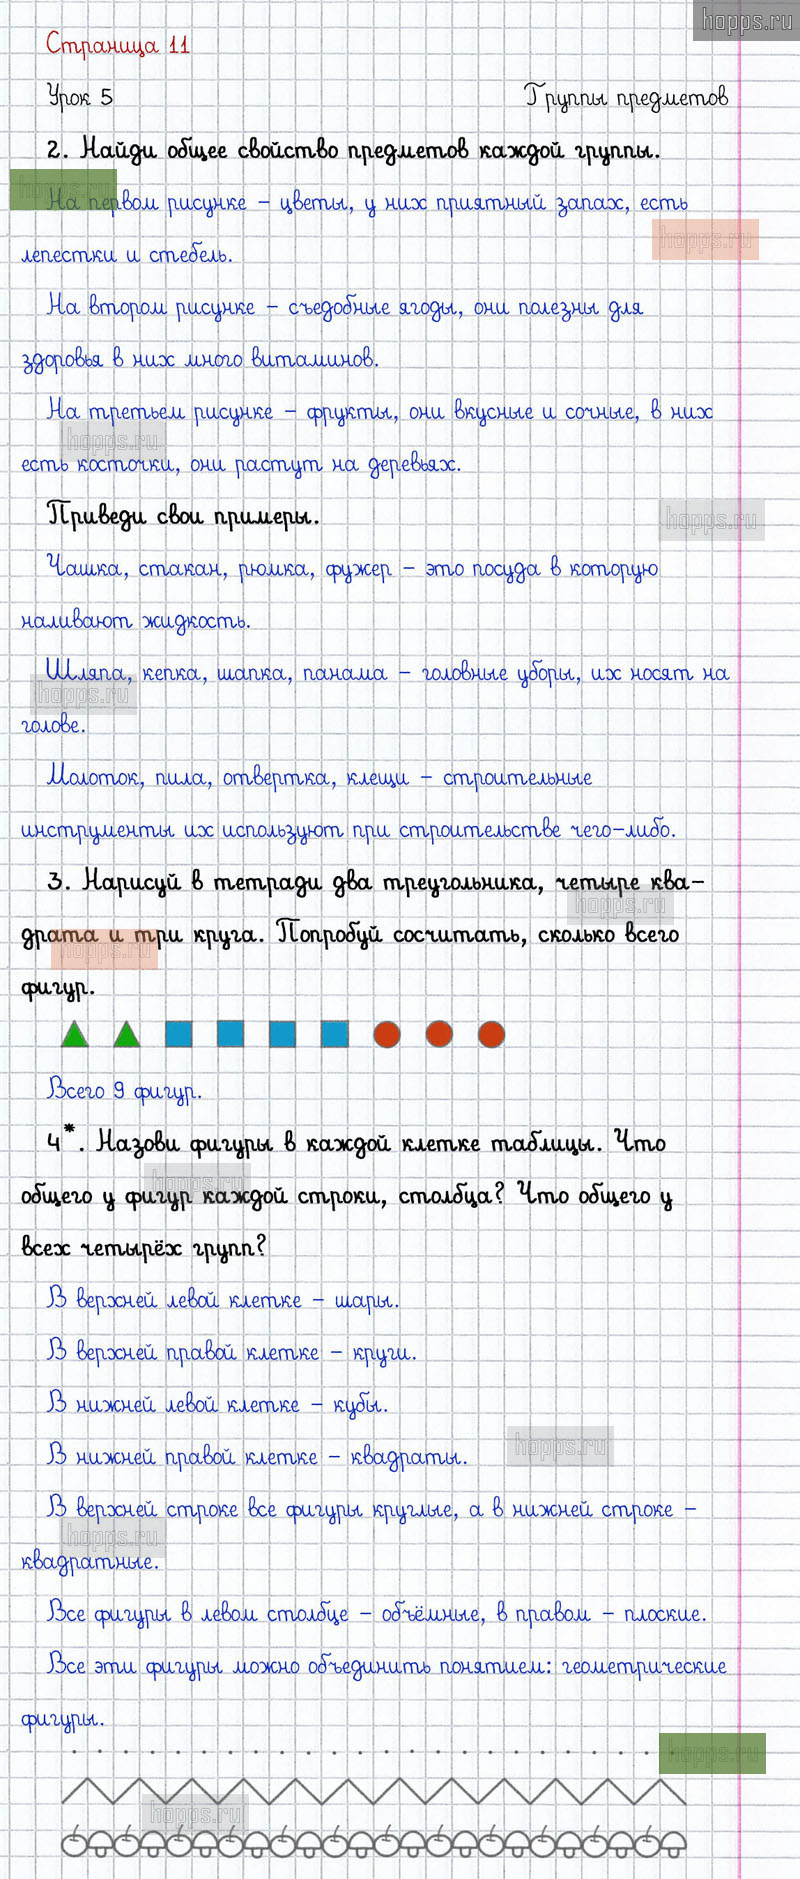 hopps.ru
Страница 11
Урок 5 Группы предметов
2. Найди общее свойство предметов каждой группы.
hopps.ru
На первом рисунке – цветы, у них приятный запах, есть
hopps.ru
лепестки и стебель.
На втором рисунке – съедобные ягоды, они полезны для
здоровья в них много витаминов.
На третьем рисунке – фрукты, они вкусные и сочные, в них
hopps.ru
есть косточки, они растут на деревьях.
Приведи свои примеры.
hopps.ru
Чашка, стакан, рюмка, фужер – это посуда в которую
наливают жидкость.
Шляпа, кепка, шапка, панама – головные уборы, их носят на
hopps.ru
голове.
Молоток, пила, отвертка, клещи – строительные
инструменты их используют при строительстве чего-либо.
3. Нарисуй в тетради два треугольника, четыре ква-
hopps.ru
драта и три круга. Попробуй сосчитать, сколько всего
hopps.ru
фигур.
Всего 9 фигур.
4*. Назови фигуры в каждой клетке таблицы. Что
hopps.ru
общего у фигур каждой строки, столбца? Что общего у
всех четырёх групп?
В верхней левой клетке – шары.
В верхней правой клетке – круги.
В нижней левой клетке – кубы.
hopps.ru
В нижней правой клетке – квадраты.
В верхней строке все фигуры круглые, а в нижней строке –
hopps.ru
квадратные.
Все фигуры в левом столбце – объёмные, в правом – плоские.
Все эти фигуры можно объединить понятием: геометрические
фигуры.
hopps.ru
hopps.ru